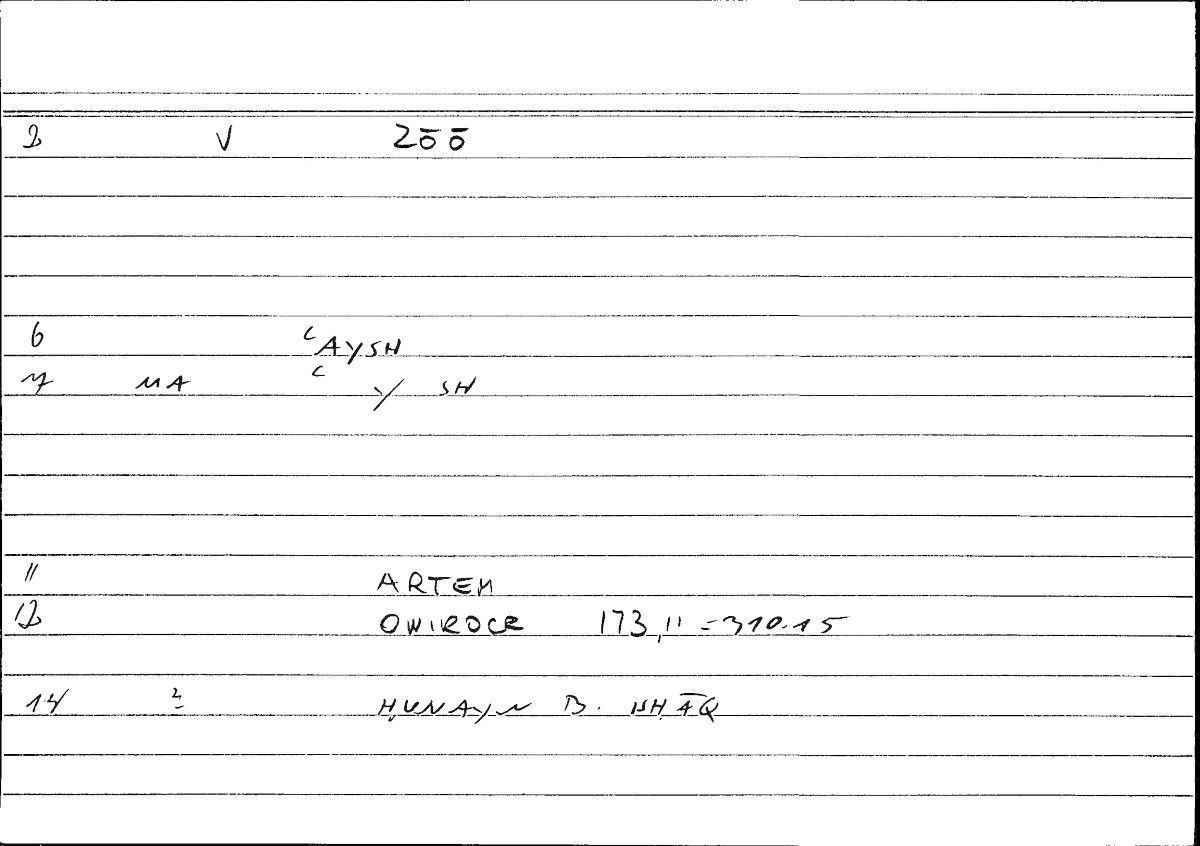 2 V 200
6 ʿAYSH
7 MA ʿ Y SH
11 ARTEM
12 ONIROCR 173,11 = 310.15
14 2 ḤUNAYN B. ISḤĀQ